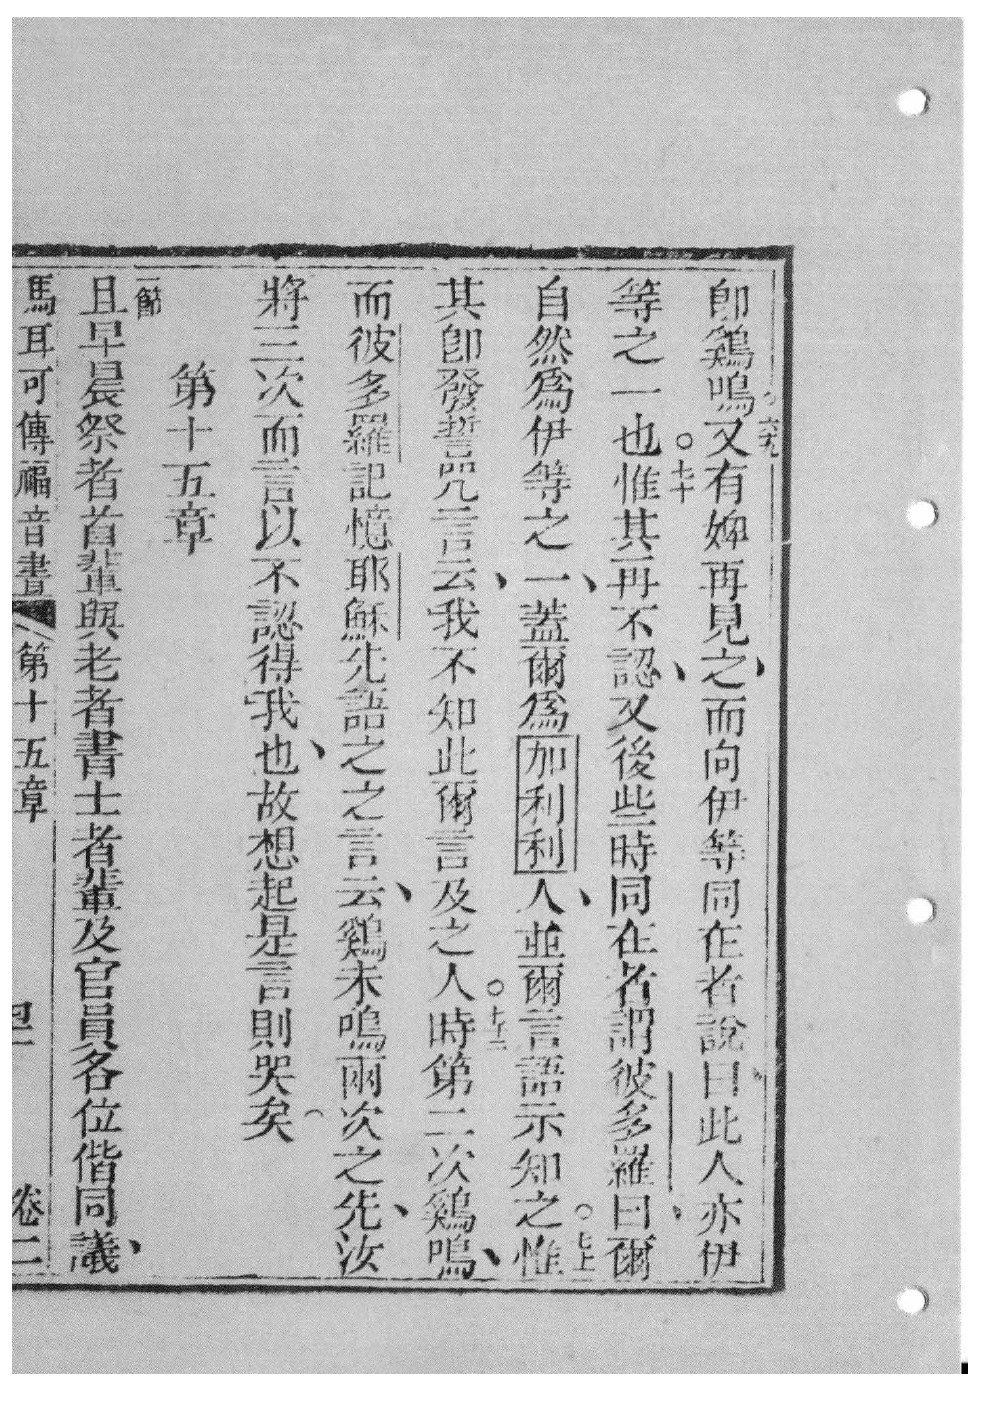 即鷄鳴六九又有婢再見之而向伊等同在者說曰此人亦伊
等之一也七十惟其再不認又後些時同在者謂彼多羅曰爾
自然爲伊等之一蓋爾爲加利利人並爾言語示知之七上惟
其即發誓咒言云我不知此爾言及之人時七十二第二次鷄鳴
而彼多羅記憶耶穌先語之之言云鷄未鳴兩次之先汝
將三次而言以不認得我也故想起是言則哭矣
第十五章
一節且早晨祭者首輩與老者書士者輩及官員各位偕同議
馬耳可傳福音書 第十五章 卷二